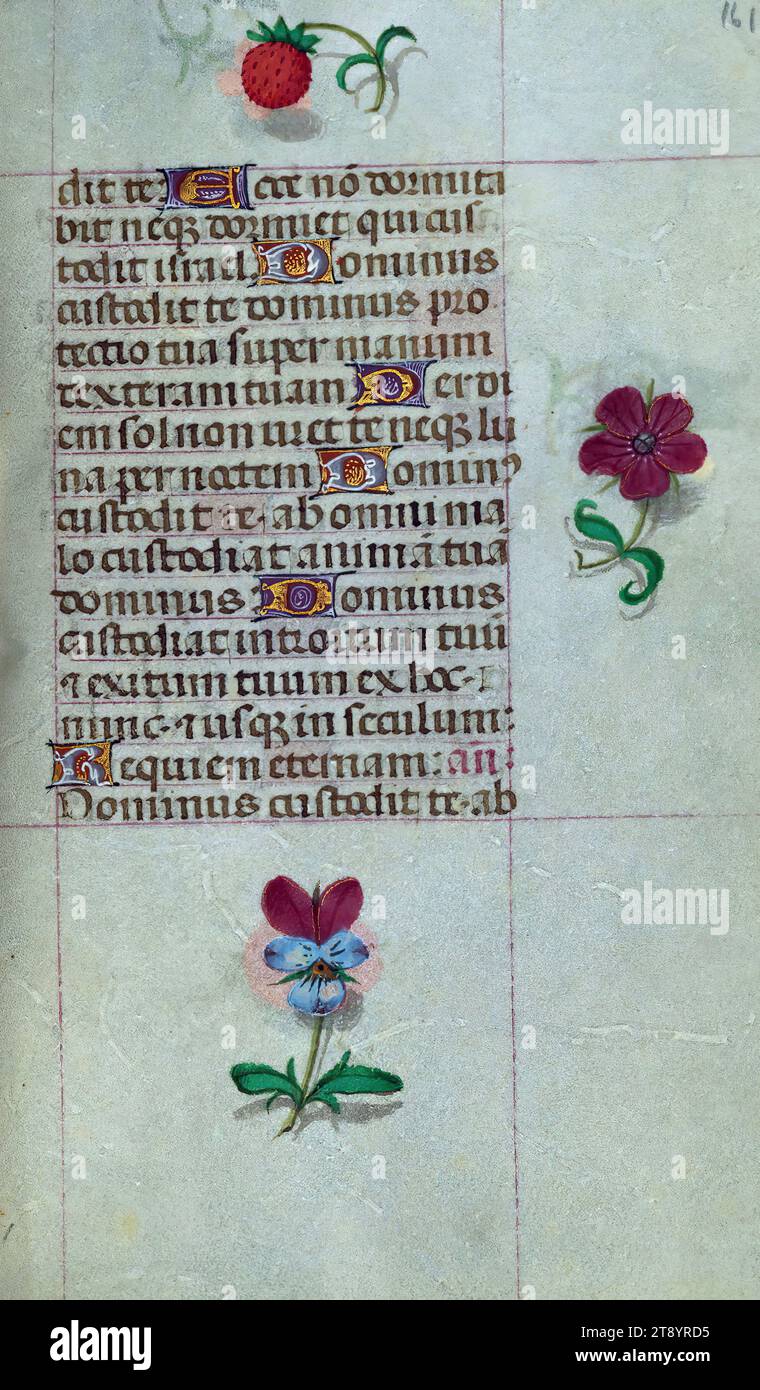 161
dit te. Ecce nō dormita
bit neqꝫ dormiet qui cus
todit israel. Dominus
custodit te dominus pro
tectio tua super manum
dexteram tuam Per di
em sol non uret te neqꝫ lu
na per noctem Dominꝰ
custodit te. ab omni ma
lo custodiat animā tuā
dominus: Dominus
custodiat introitum tuū
⁊ exitum tuum ex hoc.
nunc. ⁊ usqꝫ in seculum:
Requiem eternam: añ:
Dominus custodit te. ab
alamy
alamy
alamy
Image ID: 2T8YRD5
www.alamy.com